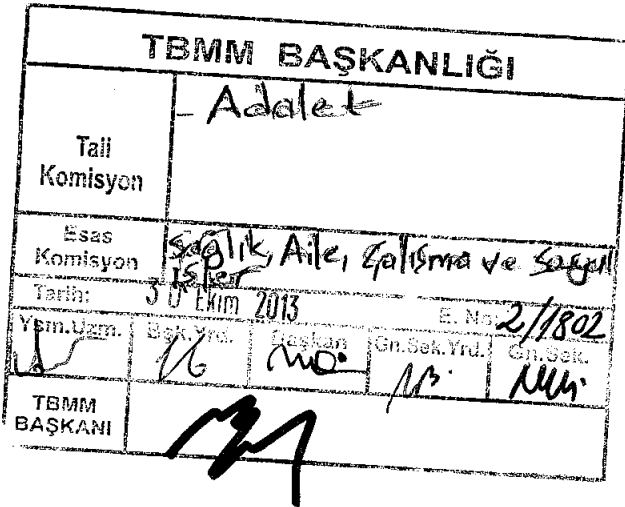 TBMM BAŞKANLIĞI
Tali
Komisyon
- Adalet
Esas
Komisyon
Sağlık, Aile, Çalışma ve Sosyal
İşler
Tarih: 30 Ekim 2013 E. No: 2/1802
Ysm.Uzm. Bşk.Yrd. Başkan Gn.Sek.Yrd. Gn.Sek.
TBMM
BAŞKANI